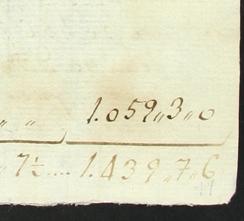 „ „ 1.059„3„0
„ 7½.... 1.439„7„6